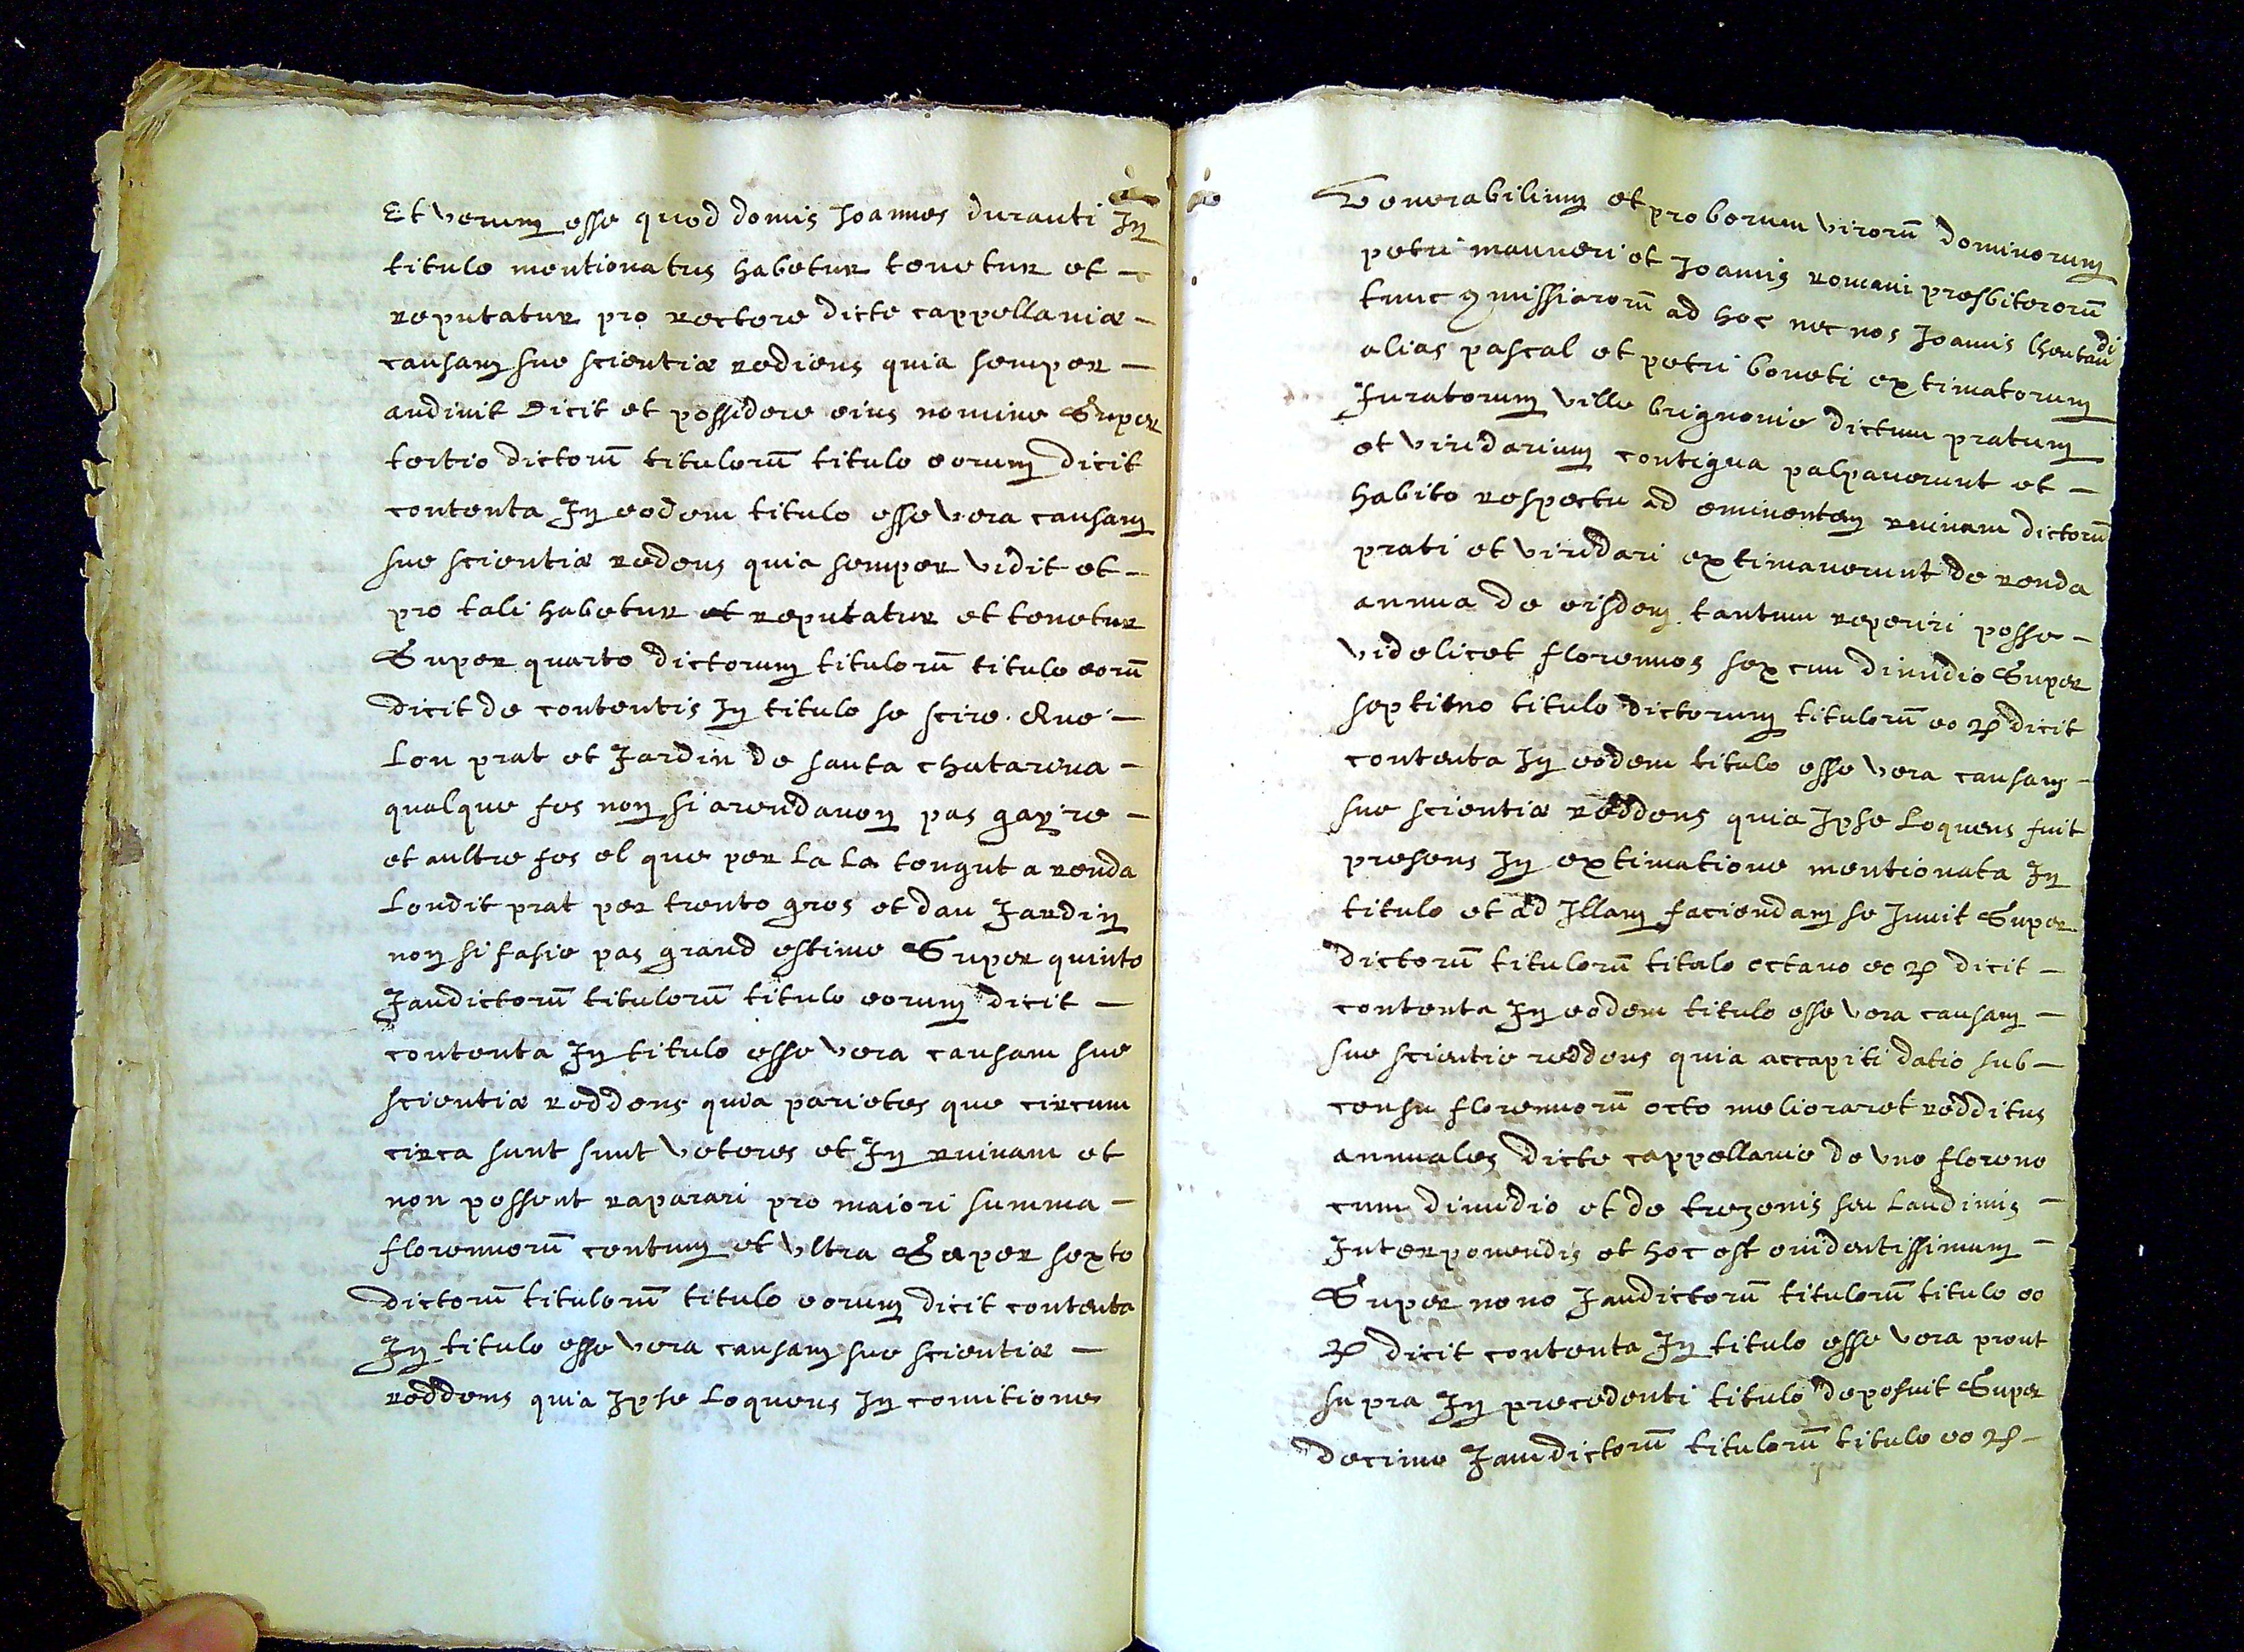 Et verum esse quod domis Joannes duranti In
titulo mentionatus habetur tenetur et –
reputatur pro rectore dicte cappellaniæ –
causam sue scientiæ rediens quia semper –
audivit dicit et possidere eius nomine Super
tertio dictorū titulorū titulo eorum dicit
contenta In eodem titulo esse vera causam
sue scientiæ redens quia semper vidit et –
pro tali habetur et reputatur et tenetur
Super quarto dictorum titulorū titulo eorū
dicit de contentis In titulo se scire. Que –
Lou prat et Jardin de santa chatarena –
qualque fes non si arendavon pas gayre –
et aultre fes el que per la La tengut a renda
Loudit prat per trento gros et dau Jardin
non si fasie pas grand estime Super quinto
Jandictorū titulorū titulo eorum dicit –
contenta In titulo esse vera causam sue
scientiæ reddens quia parietes que circum
circa sunt sunt veteres et In ruinam et
non possent raparari pro maiori summa –
florennorū centum et vltra Super sexto
dictorū titulorū titulo eorum dicit contenta
In titulo esse vera causam sue scientiæ –
reddens quia Ipse Loquens In comitione
Venerabilium et proborum virorū dominorum
petri mauneri et Joannis romani presbiterorū
tunc ꝯmissiarorū ad hoc nec nos Joannis
alias pascal et petri boneti extimatorum
Juratorum ville brignonie dictum pratum
et viridarium contigua palpaverunt et –
habito respectu ad eminentem ruinam dictorū
prati et viridari extimaverunt de renda
annua de eisdem tantum reperiri posse –
videlicet florennos sex cum dimidio Super
septimo titulo dictorum titulorū eoꝝ dicit
contenta In eodem titulo esse vera causam –
sue scientiæ reddens quia Ipse Loquens fuit
presens In extimatione mentionata In
titulo et ad Illam faciendam se Juuit Super
dictorū titulorū titulo octavo eoꝝ dicit –
contenta In eodem titulo esse vera causam –
sue scientie reddens quia accapiti datio sub –
censu florennorū octo melioraret redditus
annuales dicte cappellanie de vno floreno
cum dimidio et de trezenis seu Laudimis –
Interponendis et hoc est euidentissimum –
Super nono Jandictorū titulorū titulo eo
ꝝ dicit contenta In titulo esse vera prout
supra In precedenti titulo deposuit Super
decimo Jamdictorū titulorū titulo eoꝝ –